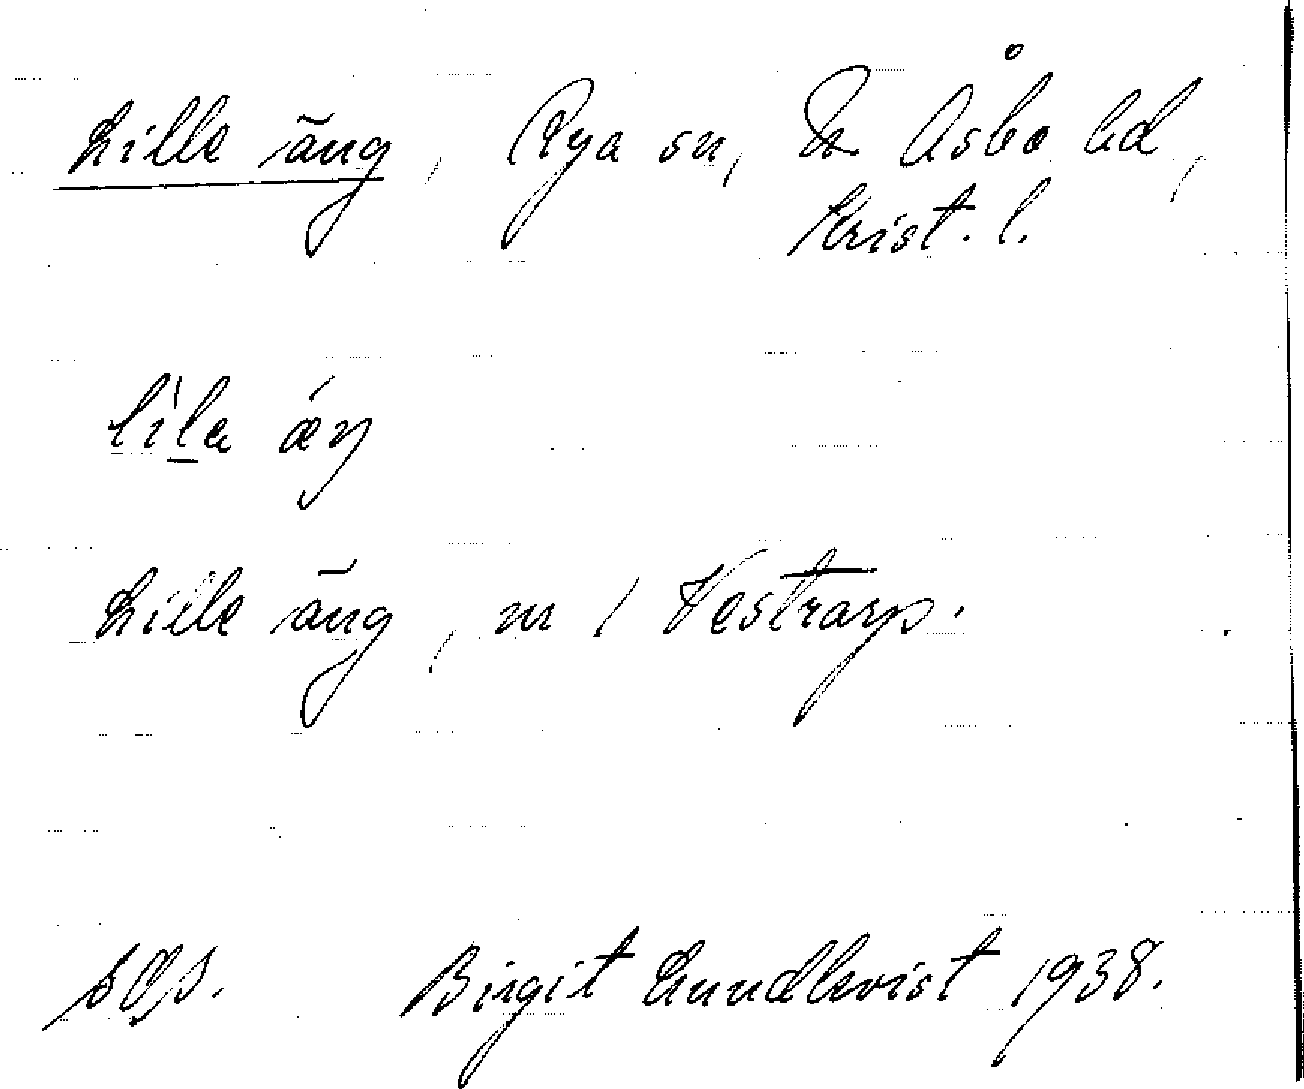 Lille äng, Rya sn, N Åsbo hd,
Krist. l.
lìla áŋ
Lille äng, nr 1 Vestrarp.
Birgit Lundkvist 1938.